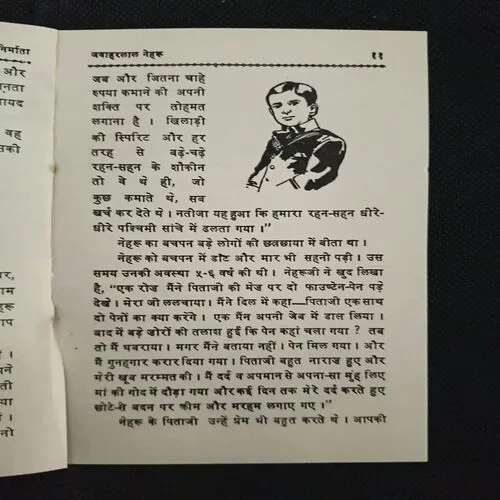 निर्माता
और
वह
जवाहरलाल नेहरू ११
जब और जितना चाहे
रुपया कमाने की अपनी
शक्ति पर तोहमत
लगाना है । खिलाड़ी
की स्पिरिट और हर
तरह से बढ़े-चढ़े
रहन-सहन के शौकीन
तो वे थे ही, जो
कुछ कमाते थे, सब
खर्च कर देते थे । नतीजा यह हुआ कि हमारा रहन-सहन धीरे-
धीरे पश्चिमी सांचे में ढलता गया ।”
नेहरू का बचपन बड़े लोगों की छत्रछाया में बीता था ।
नेहरू को बचपन में डाँट और मार भी सहनी पड़ी । उस
समय उनकी अवस्था ५-६ वर्ष की थी । नेहरूजी ने खुद लिखा
है, “एक रोज मैंने पिताजी की मेज पर दो फाउण्टेन-पेन पड़े
देखे । मेरा जी ललचाया । मैंने दिल में कहा—पिताजी एक साथ
दो पेनों का क्या करेंगे । एक मैंने अपनी जेब में डाल लिया ।
बाद में बड़े जोरों की तलाश हुई कि पेन कहां चला गया ? तब
तो मैं घबराया । मगर मैंने बताया नहीं । पेन मिल गया । और
मैं गुनहगार करार दिया गया । पिताजी बहुत नाराज हुए और
मेरी खूब मरम्मत की । मैं दर्द व अपमान से अपना-सा मुंह लिए
मां की गोद में दौड़ा गया और कई दिन तक मेरे दर्द करते हुए
छोटे-से बदन पर क्रीम और मरहम लगाए गए ।”
नेहरू के पिताजी उन्हें प्रेम भी बहुत करते थे । आपकी